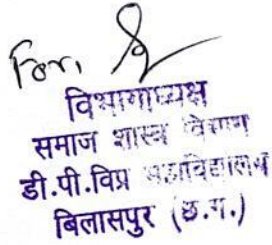 For,
विभागाध्यक्ष
समाज शास्त्र विभाग
डी.पी.विप्र महाविद्यालय
बिलासपुर (छ.ग.)